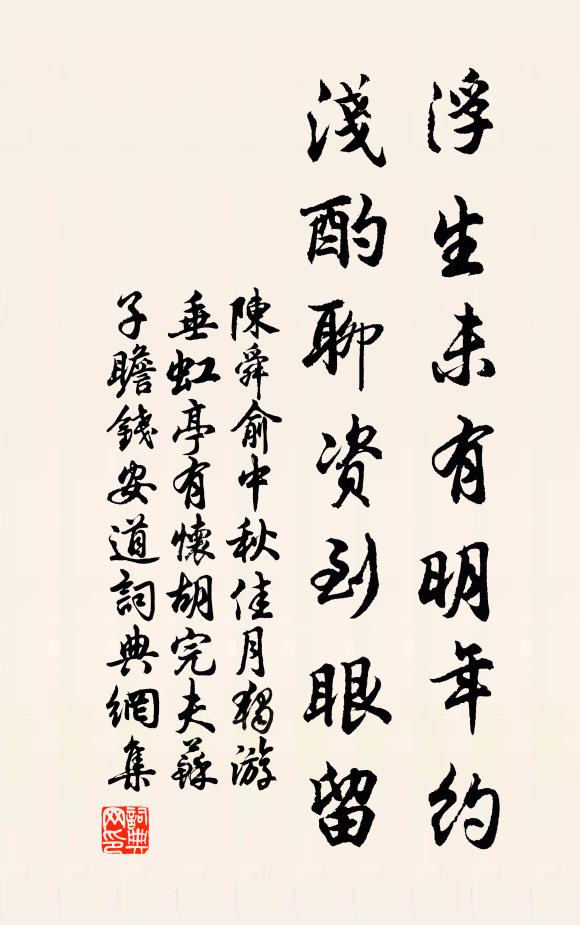 浮生未有明年約
淺酌聊資到眼留
陳舜俞中秋佳月獨游
垂虹亭有懷胡完夫蘇
子瞻錢安道詞典網集
詞典网印